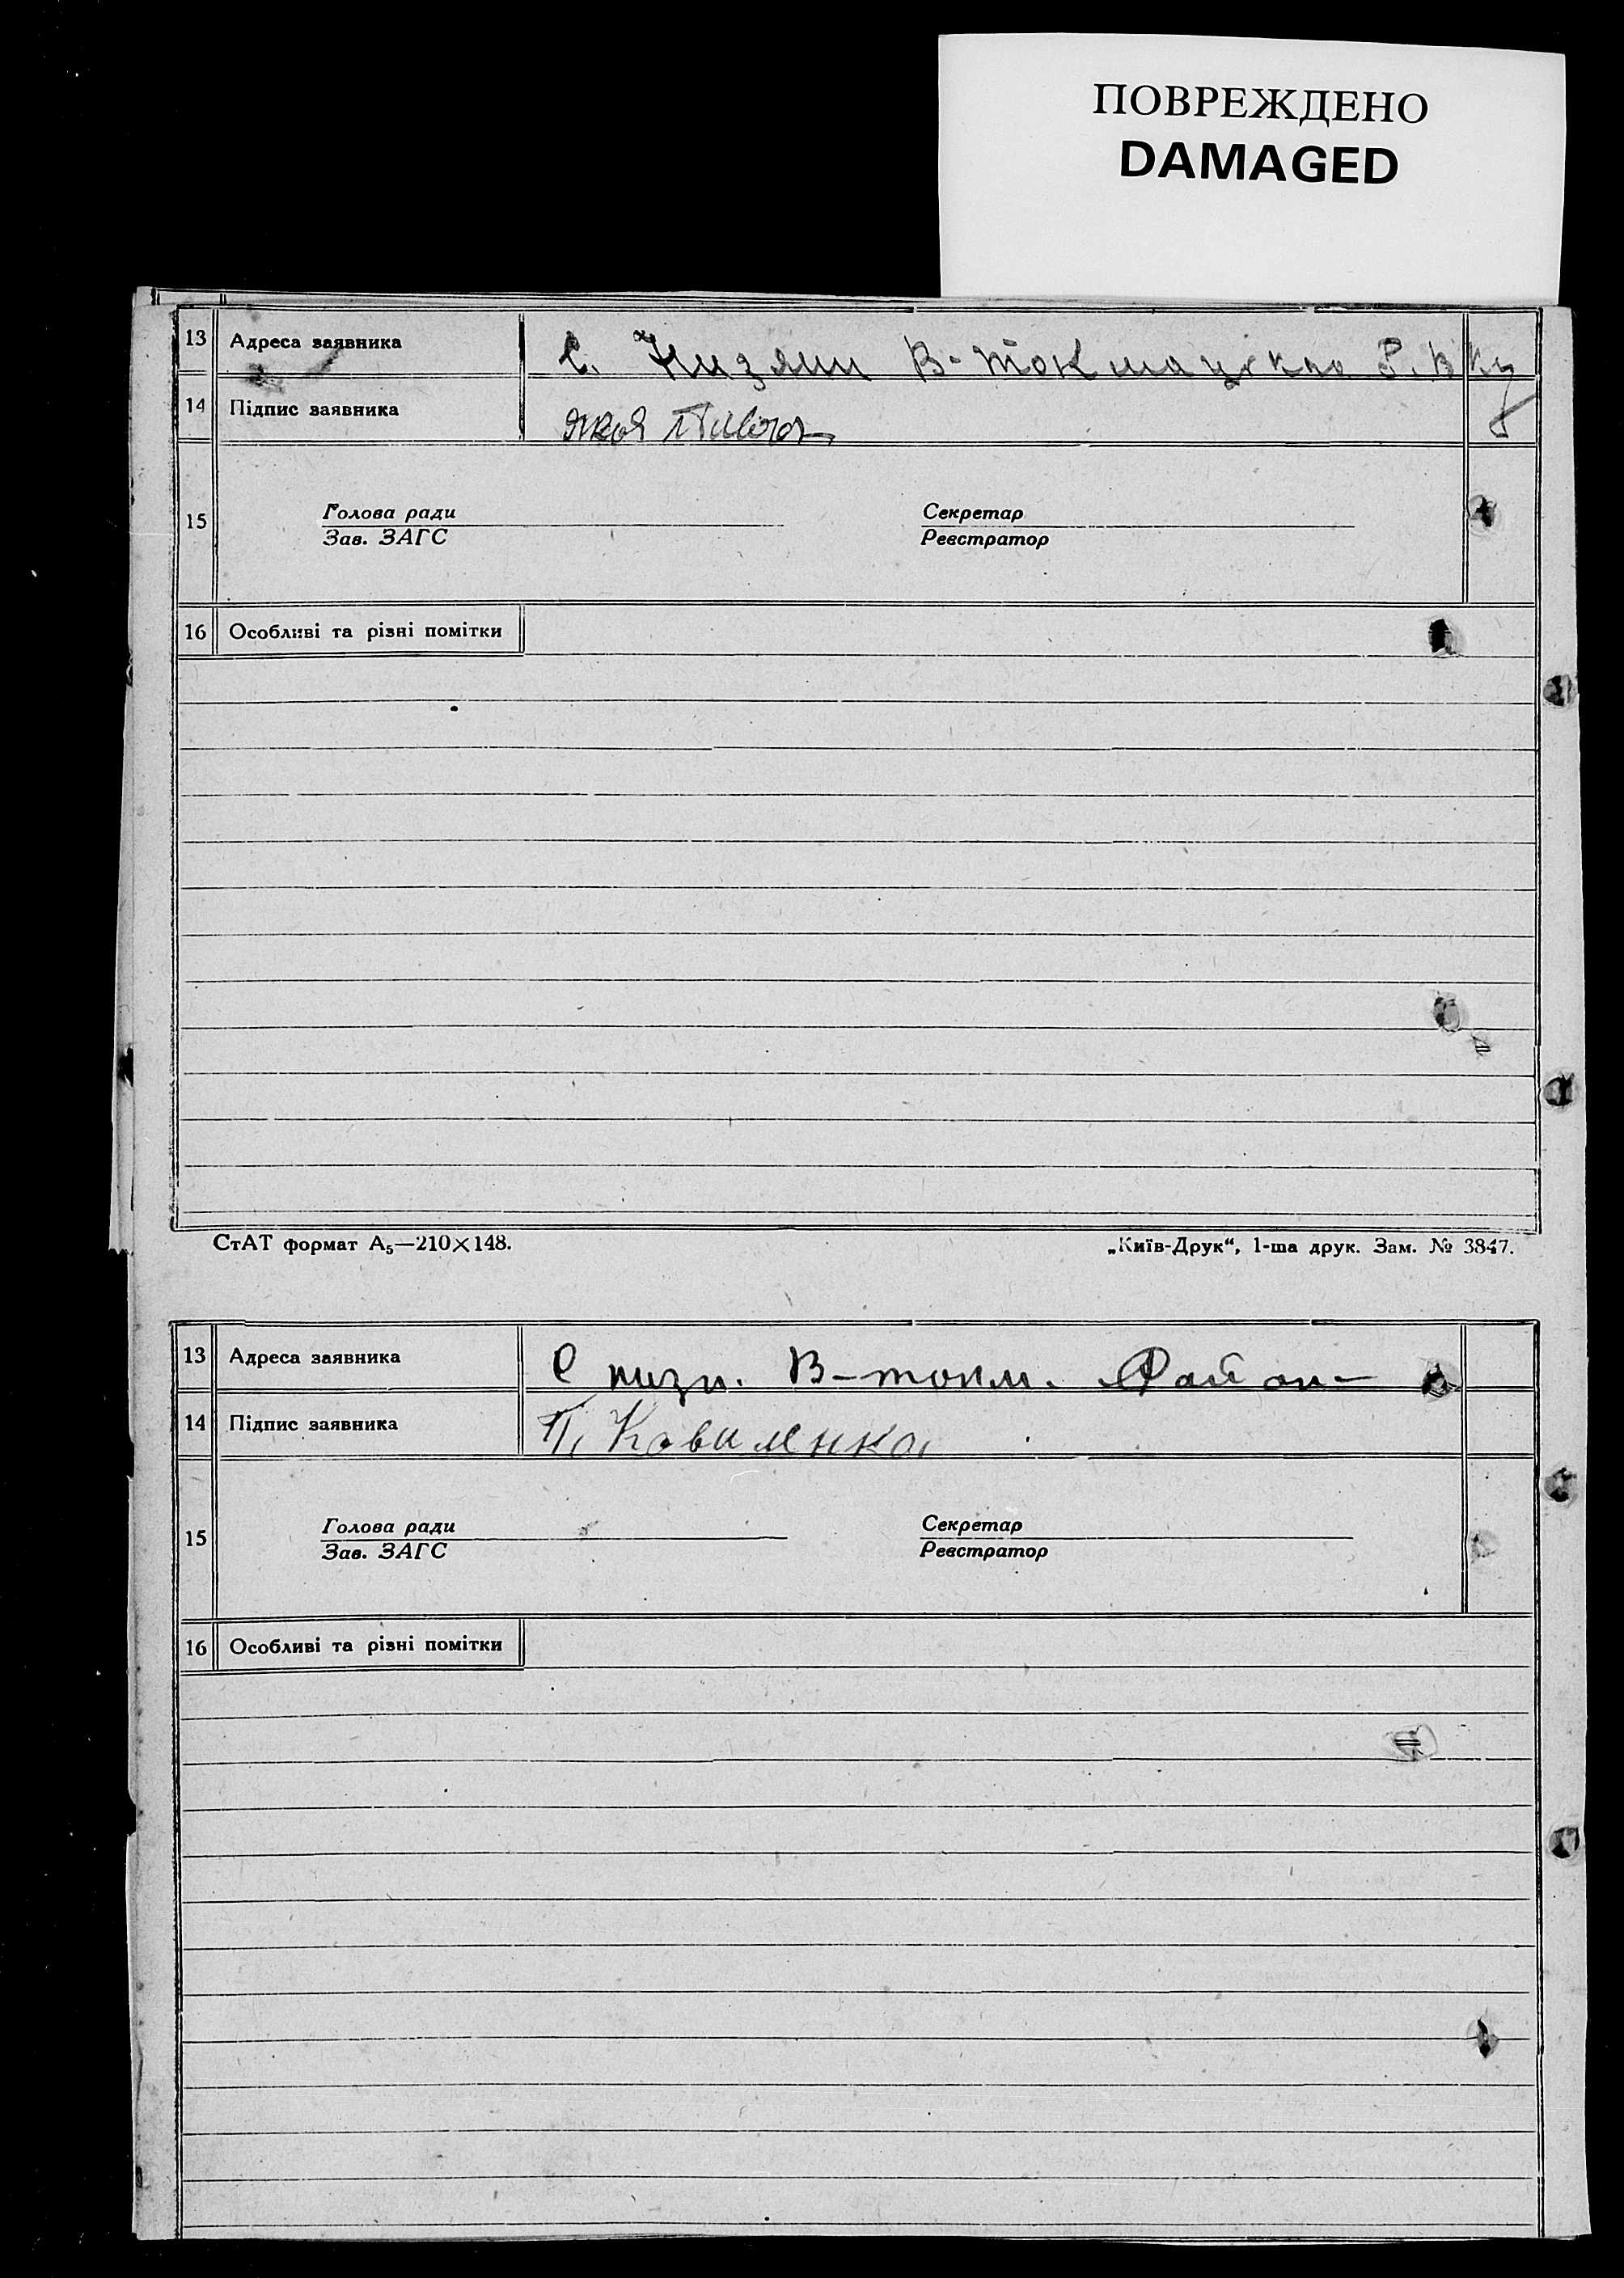 ПОВРЕЖДЕНО
DAMAGED
13 Адреса заявника С. Низяни В-Токмацького Р.
14 Підпис заявника
15 Голова ради Секретар
Зав. ЗАГС Реєстратор
16 Особливі та різні помітки
СтАТ формат А₅—210×148. „Київ-Друк“, 1-ша друк. Зам. № 3847.
13 Адреса заявника С низн. В-токм. Район-
14 Підпис заявника П, Коваленко
15 Голова ради Секретар
Зав. ЗАГС Реєстратор
16 Особливі та різні помітки